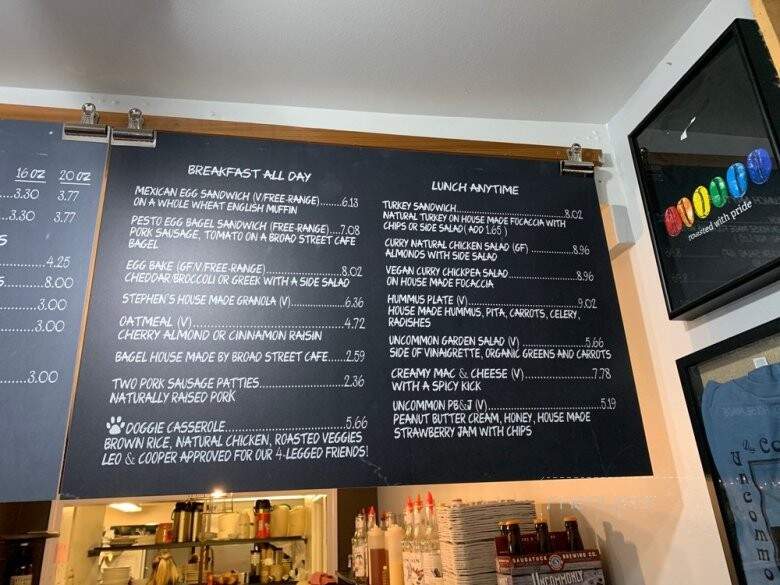 16 OZ 20 OZ
....3.30 3.77
....3.30 3.77
S
......4.25
S......8.00
......3.00
......3.00
......3.00
BREAKFAST ALL DAY
MEXICAN EGG SANDWICH (V/FREE-RANGE).....6.13
ON A WHOLE WHEAT ENGLISH MUFFIN
PESTO EGG BAGEL SANDWICH (FREE-RANGE)....7.08
PORK SAUSAGE, TOMATO ON A BROAD STREET CAFE
BAGEL
EGG BAKE (GF/V/FREE-RANGE)..................8.02
CHEDDAR/BROCCOLI OR GREEK WITH A SIDE SALAD
STEPHEN'S HOUSE MADE GRANOLA (V)............6.36
OATMEAL (V)....................................4.72
CHERRY ALMOND OR CINNAMON RAISIN
BAGEL HOUSE MADE BY BROAD STREET CAFE....2.59
TWO PORK SAUSAGE PATTIES...................2.36
NATURALLY RAISED PORK
DOGGIE CASSEROLE...........................5.66
BROWN RICE, NATURAL CHICKEN, ROASTED VEGGIES
LEO & COOPER APPROVED FOR OUR 4-LEGGED FRIENDS!
LUNCH ANYTIME
TURKEY SANDWICH............................8.02
NATURAL TURKEY ON HOUSE MADE FOCACCIA WITH
CHIPS OR SIDE SALAD ( ADD 1.65 )
CURRY NATURAL CHICKEN SALAD (GF)...........8.96
ALMONDS WITH SIDE SALAD
VEGAN CURRY CHICKPEA SALAD.................8.96
ON HOUSE MADE FOCACCIA
HUMMUS PLATE (V)............................9.02
HOUSE MADE HUMMUS, PITA, CARROTS, CELERY,
RADISHES
UNCOMMON GARDEN SALAD (V)..................5.66
SIDE OF VINAIGRETTE, ORGANIC GREENS AND CARROTS
CREAMY MAC & CHEESE (V)....................7.78
WITH A SPICY KICK
UNCOMMON PB&J (V)..........................5.19
PEANUT BUTTER CREAM, HONEY, HOUSE MADE
STRAWBERRY JAM WITH CHIPS
roasted with pride
Uncom
SAUGATUCK BREWING CO.
UNCOMMONLY